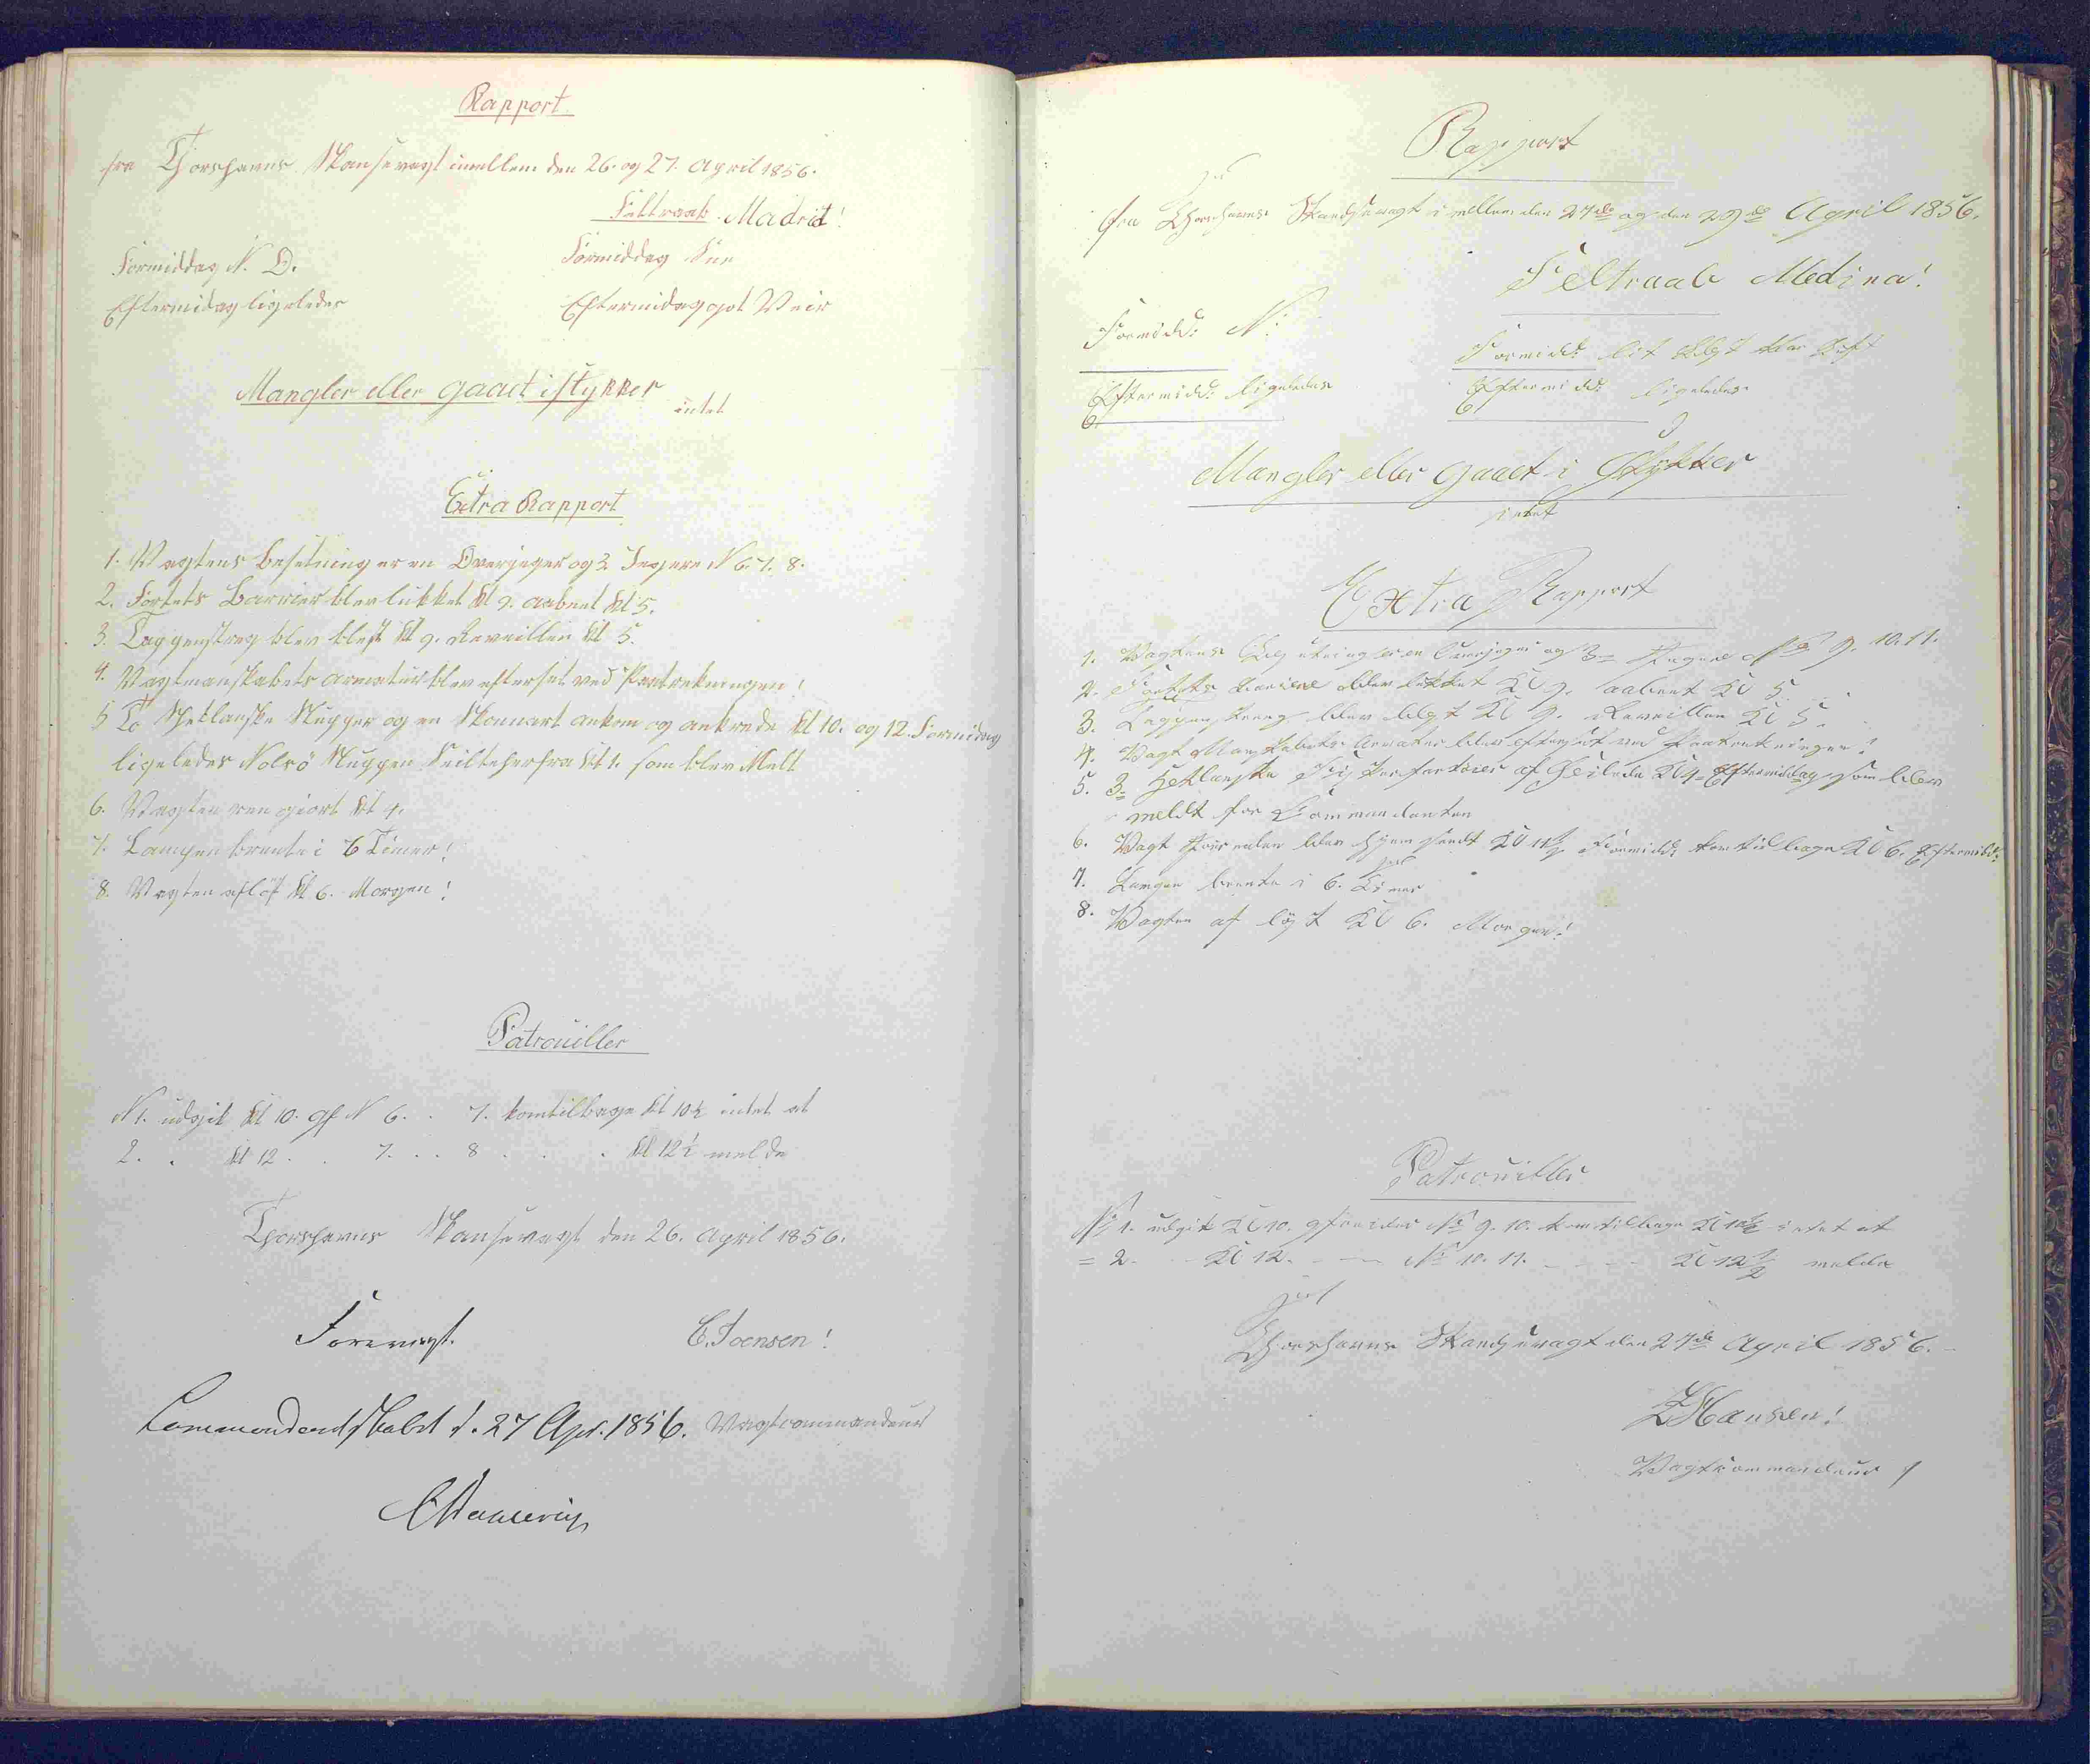 Rapport
fra Thorshavns Skansevagt imellem den 26. og 27. April 1856.
Feltraab Madrid!
Formiddag N. O.
Formiddag
Eftermidag ligeledes
Eftermidag got Veir
Mangler eller gaaet istykker
intet
Extra Rapport
1. Vagtens Besetning er en Overjeger og 3 Jegere N 6. 7. 8.
2. Fortets Barrier blev lukket Kl 9. aabnet Kl 5.
3. Tappenstreg blev blest Kl 9. Reveillen Kl 5.
4. Vagtmanskabets armatur blev efterset ved
5 To Hetlanske Slupper og en Skonnart ankom og ankrede Kl 10. og 12. Formidag
ligeledes Nolsö Sluppen Seilte herfra Kl 1. som blev Melt
6. Vagten ren giort Kl 4.
7. Lampen brente i 6 Timer!
8. Vagten aflöst Kl 6. Morgen!
Patrouiller
N 1. udgik Kl 10. gf N 6. . 7. kom tilbage Kl 10½ intet at
2. . Kl 12 . . 7. . . 8 . . . Kl 12½ melde
Thorshavns Skansevagt den 26. April 1856.
Forevist. C. Joensen!
Commendentskabet d. 27 Apr. 1856. Vagtcommandeur
Rapport
fra Thorshavns Skandsevagt imellem den 27de og den 29de April 1856.
Feltraab Medina!
Formidd: N:
Formidd: lit Blest klar Luft
Eftermidd: ligeledes
Eftermidd: ligeledes
Mangler eller gaaet i Stykker
intet
Extra Rapport
1. Vagtens Besetning er en Overjeger og 3 Jegere No 9. 10. 11.
2. Fortets Bariere blev lukket Kl 9. aabnet Kl 5
3. Tappenstreeg blev blest Kl 9. Reveillen Kl 5.
4. Vagt Manskabets Armatur blev efterset ved
5. 3 Hetlanske af Seilede Kl 4 Eftermiddag som blev
meldt for Commandanten
6. Vagt Journalen blev hjem sendt Kl 11½ Formidd: kom tilbage Kl 6. Eftermidd:
7. Lampen brente i 6. Timer
8. Vagten af löst Kl 6. Morgen!
Patrouiller
No 1. udgik Kl 10. No 9. 10. kom tilbage Kl 10½ intet at
= 2 - Kl 12. - — No 10. 11. - - - Kl 12½ melde
Thorshavns Skandsevagt den 27de April 1856.
Hansen!
Vagtkommandeur